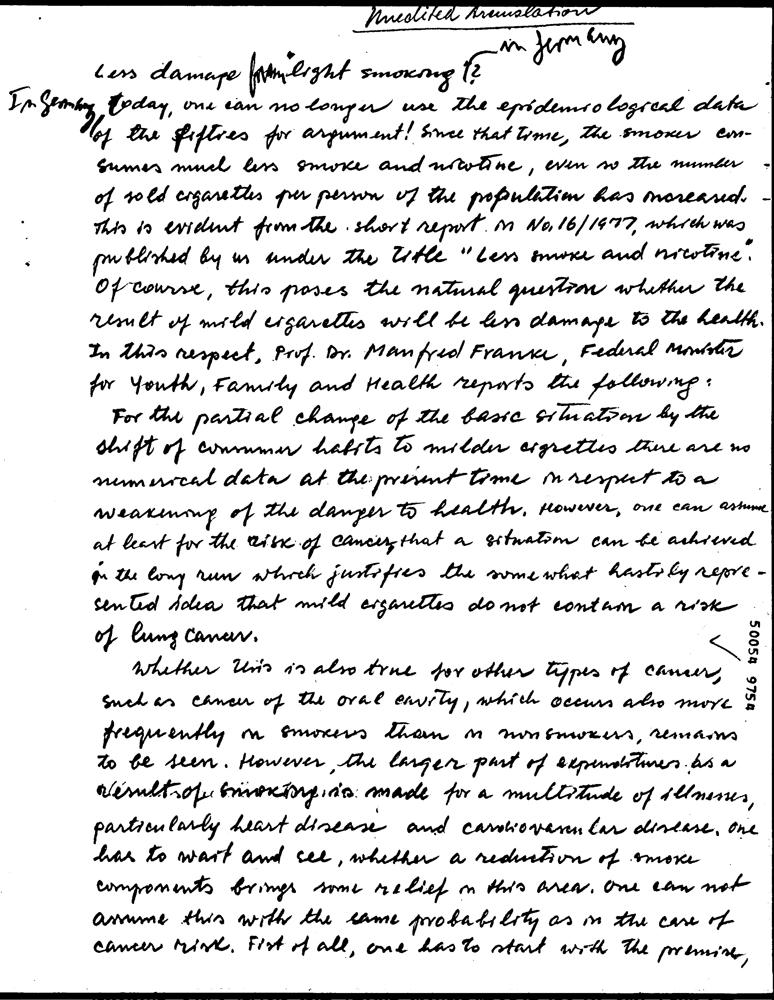 Unedited Translation
in Germany
Less damage from "light smoking"?
In Germany, today, one can no longer use the epidemiological data
of the fifties for argument! Since that time, the smoker con-
sumes much less smoke and nicotine, even so the number
of sold cigarettes per person of the population has increased.
This is evident from the short report in No. 16/1977, which was
published by us under the title "Less smoke and nicotine".
Of course, this poses the natural question whether the
result of mild cigarettes will be less damage to the health.
In this respect, Prof. Dr. Manfred Franke, Federal Minister
for Youth, Family and Health reports the following:
For the partial change of the basic situation by the
shift of consumer habits to milder cigrettes there are no
numerical data at the present time in respect to a
weakening of the danger to health. However, one can assume
at least for the risk of cancer, that a situation can be achieved
in the long run which justifies the somewhat hastily repre-
sented idea that mild cigarettes do not contain a risk
of lung cancer.
Whether this is also true for other types of cancer,
such as cancer of the oral cavity, which occurs also more
frequently in smokers than in nonsmokers, remains
to be seen. However, the larger part of expenditures as a
result of smoking is made for a multitude of illnesses,
particularly heart disease and cardiovascular disease. One
has to wait and see, whether a reduction of smoke
components brings some relief in this area. One can not
assume this with the same probability as in the case of
cancer risk. Fist of all, one has to start with the premise,
50054 9754